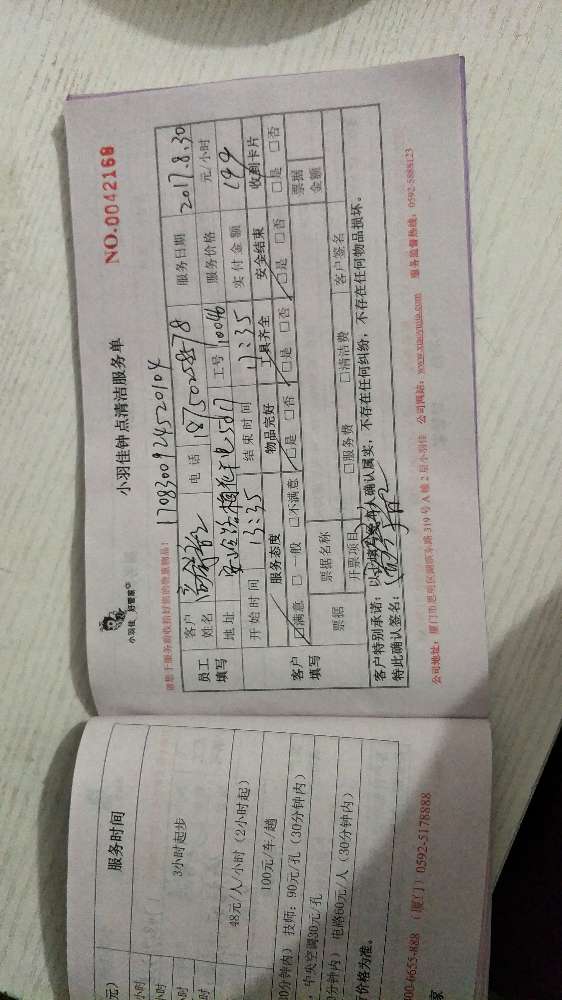 小羽佳 好管家
小羽佳钟点清洁服务单
NO.0042168
1708300924520104
客户姓名
电话
服务日期 2017.8.30
员工填写
地址
工号 10046
服务价格 元/小时
开始时间 13:35
结束时间 17:35
实付金额 199
客户填写
服务态度 物品完好 工具齐全 安全结束 收到卡片
□满意 □一般 □不满意 □是 □否 □是 □否 □是 □否 □是 □否
票据 票据名称 票据金额
开票项目 □服务费 □清洁费 客户签名
客户特别承诺：以上填写受本人确认属实，不存在任何纠纷，不存在任何物品损坏。
特此确认签名：
公司地址：厦门市思明区湖滨东路319号A幢2层小羽佳 公司网站：www.xiaoyujia.com 服务监督热线：0592-5888123
服务时间
3小时起步
48元/人/小时（2小时起）
100元/车/趟
0分钟内） 技师：90元/孔（30分钟内）
，中央空调30元/孔
分钟内） 电脑60元/人（30分钟内）
价格为准。
00-6655-888 （厦门）0592-5178888